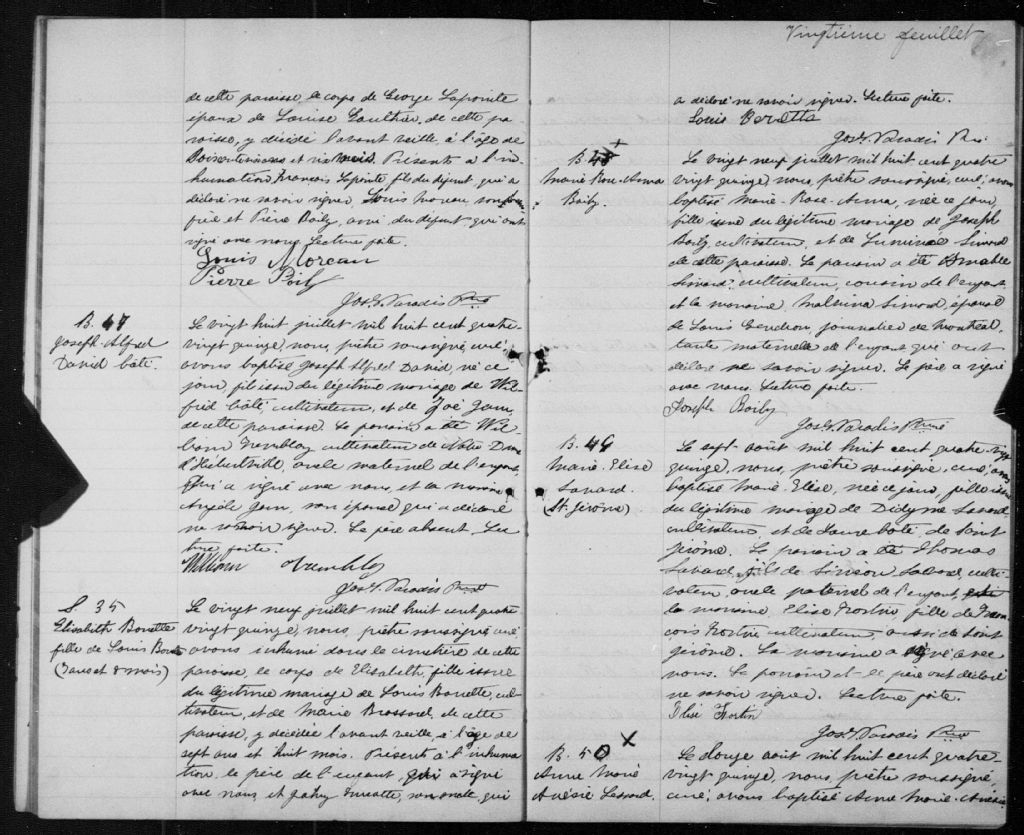 de cette paroisse, le corps de George Lapointe
époux de Louise Gauthier, de cette pa
roisse, y décédé l'avant veille, à l'âge de
et mois. Présents à l'in
humation, François Lapointe fils du défunt, qui a
déclaré ne savoir signer, Louis Moreau, son beau
frère et Pierre Boily, ami du défunt qui ont
signé avec nous. Lecture faite.
Louis Moreau
Pierre Boily
Jos. Paradis Ptre
B. 47
Joseph-Alfred
David Côté.
Le vingt huit juillet mil huit cent quatre-
vingt quinze, nous, prêtre soussigné, curé,
avons baptisé Joseph Alfred David, né ce
jour, fils issu du légitime mariage de Wil-
frid Côté, cultivateur, et de Zoé Gam,
de cette paroisse. Le parrain a été Wil-
liam Tremblay cultivateur de Notre Dame
d'Hébertville, oncle maternel de l'enfant
qui a signé avec nous, et la marraine
Angèle Gam, son épouse qui a déclaré
ne savoir signer. Le père absent. Lec
ture faite.
William Trembley
Jos. Paradis Ptre
S. 35
Elisabeth Bonette
fille de Louis Bonette
(7 ans et 8 mois)
Le vingt neuf juillet mil huit cent quatre
vingt quinze, nous, prêtre soussigné, curé
avons inhumé dans le cimetière de cette
paroisse, le corps de Elisabeth, fille issue
du légitime mariage de Louis Bonette, cul-
tivateur, et de Marie Brossard, de cette
paroisse, y décédée l'avant veille, à l'âge de
sept ans et huit mois. Présents à l'inhuma
tion, le père de l'enfant, qui a signé
avec nous, et son oncle, qui
Vingtième feuillet
a déclaré ne savoir signer. Lecture faite.
Louis Beretta
Jos. Paradis Ptre
B. 48
Marie Rose-Anna
Boily
Le vingt neuf juillet mil huit cent quatre
vingt quinze, nous, prêtre soussigné, curé, avons
baptisé Marie-Rose-Anna, née ce jour,
fille issue du légitime mariage de Joseph
Boily, cultivateur, et de Luminia Simard
de cette paroisse. Le parrain a été Amable
Simard, cultivateur, cousin de l'enfant
et la marraine Malvina Simard, épouse
de Louis Gendron, journalier de Montréal,
tante maternelle de l'enfant qui ont
déclaré ne savoir signer. Le père a signé
avec nous. Lecture faite.
Joseph Boily
Jos. Paradis Ptre
B. 49
Marie. Elise
Savard.
(St. Jérôme)
Le sept août mil huit cent quatre-vingt
quinze, nous, prêtre soussigné, curé, avons
baptisé Marie Elise, née ce jour, fille issue
du légitime mariage de Didyme Savard,
cultivateur et de Laure Côté, de Saint
Jérôme. Le parrain a été Thomas
Savard, fils de Siméon Savard, culti-
vateur, oncle paternel de l'enfant,
la marraine Elise Fortin fille de Fran
çois Fortin cultivateur, aussi de Saint
Jérôme. La marraine a signé avec
nous. Le parrain et le père ont déclaré
ne savoir signer. Lecture faite.
Elise Fortin
Jos. Paradis Ptre
B. 50
Anne Marie
Anésie Lessard.
Le douze août mil huit cent quatre-
vingt quinze, nous, prêtre soussigné,
curé, avons baptisé Anne Marie-Anésie